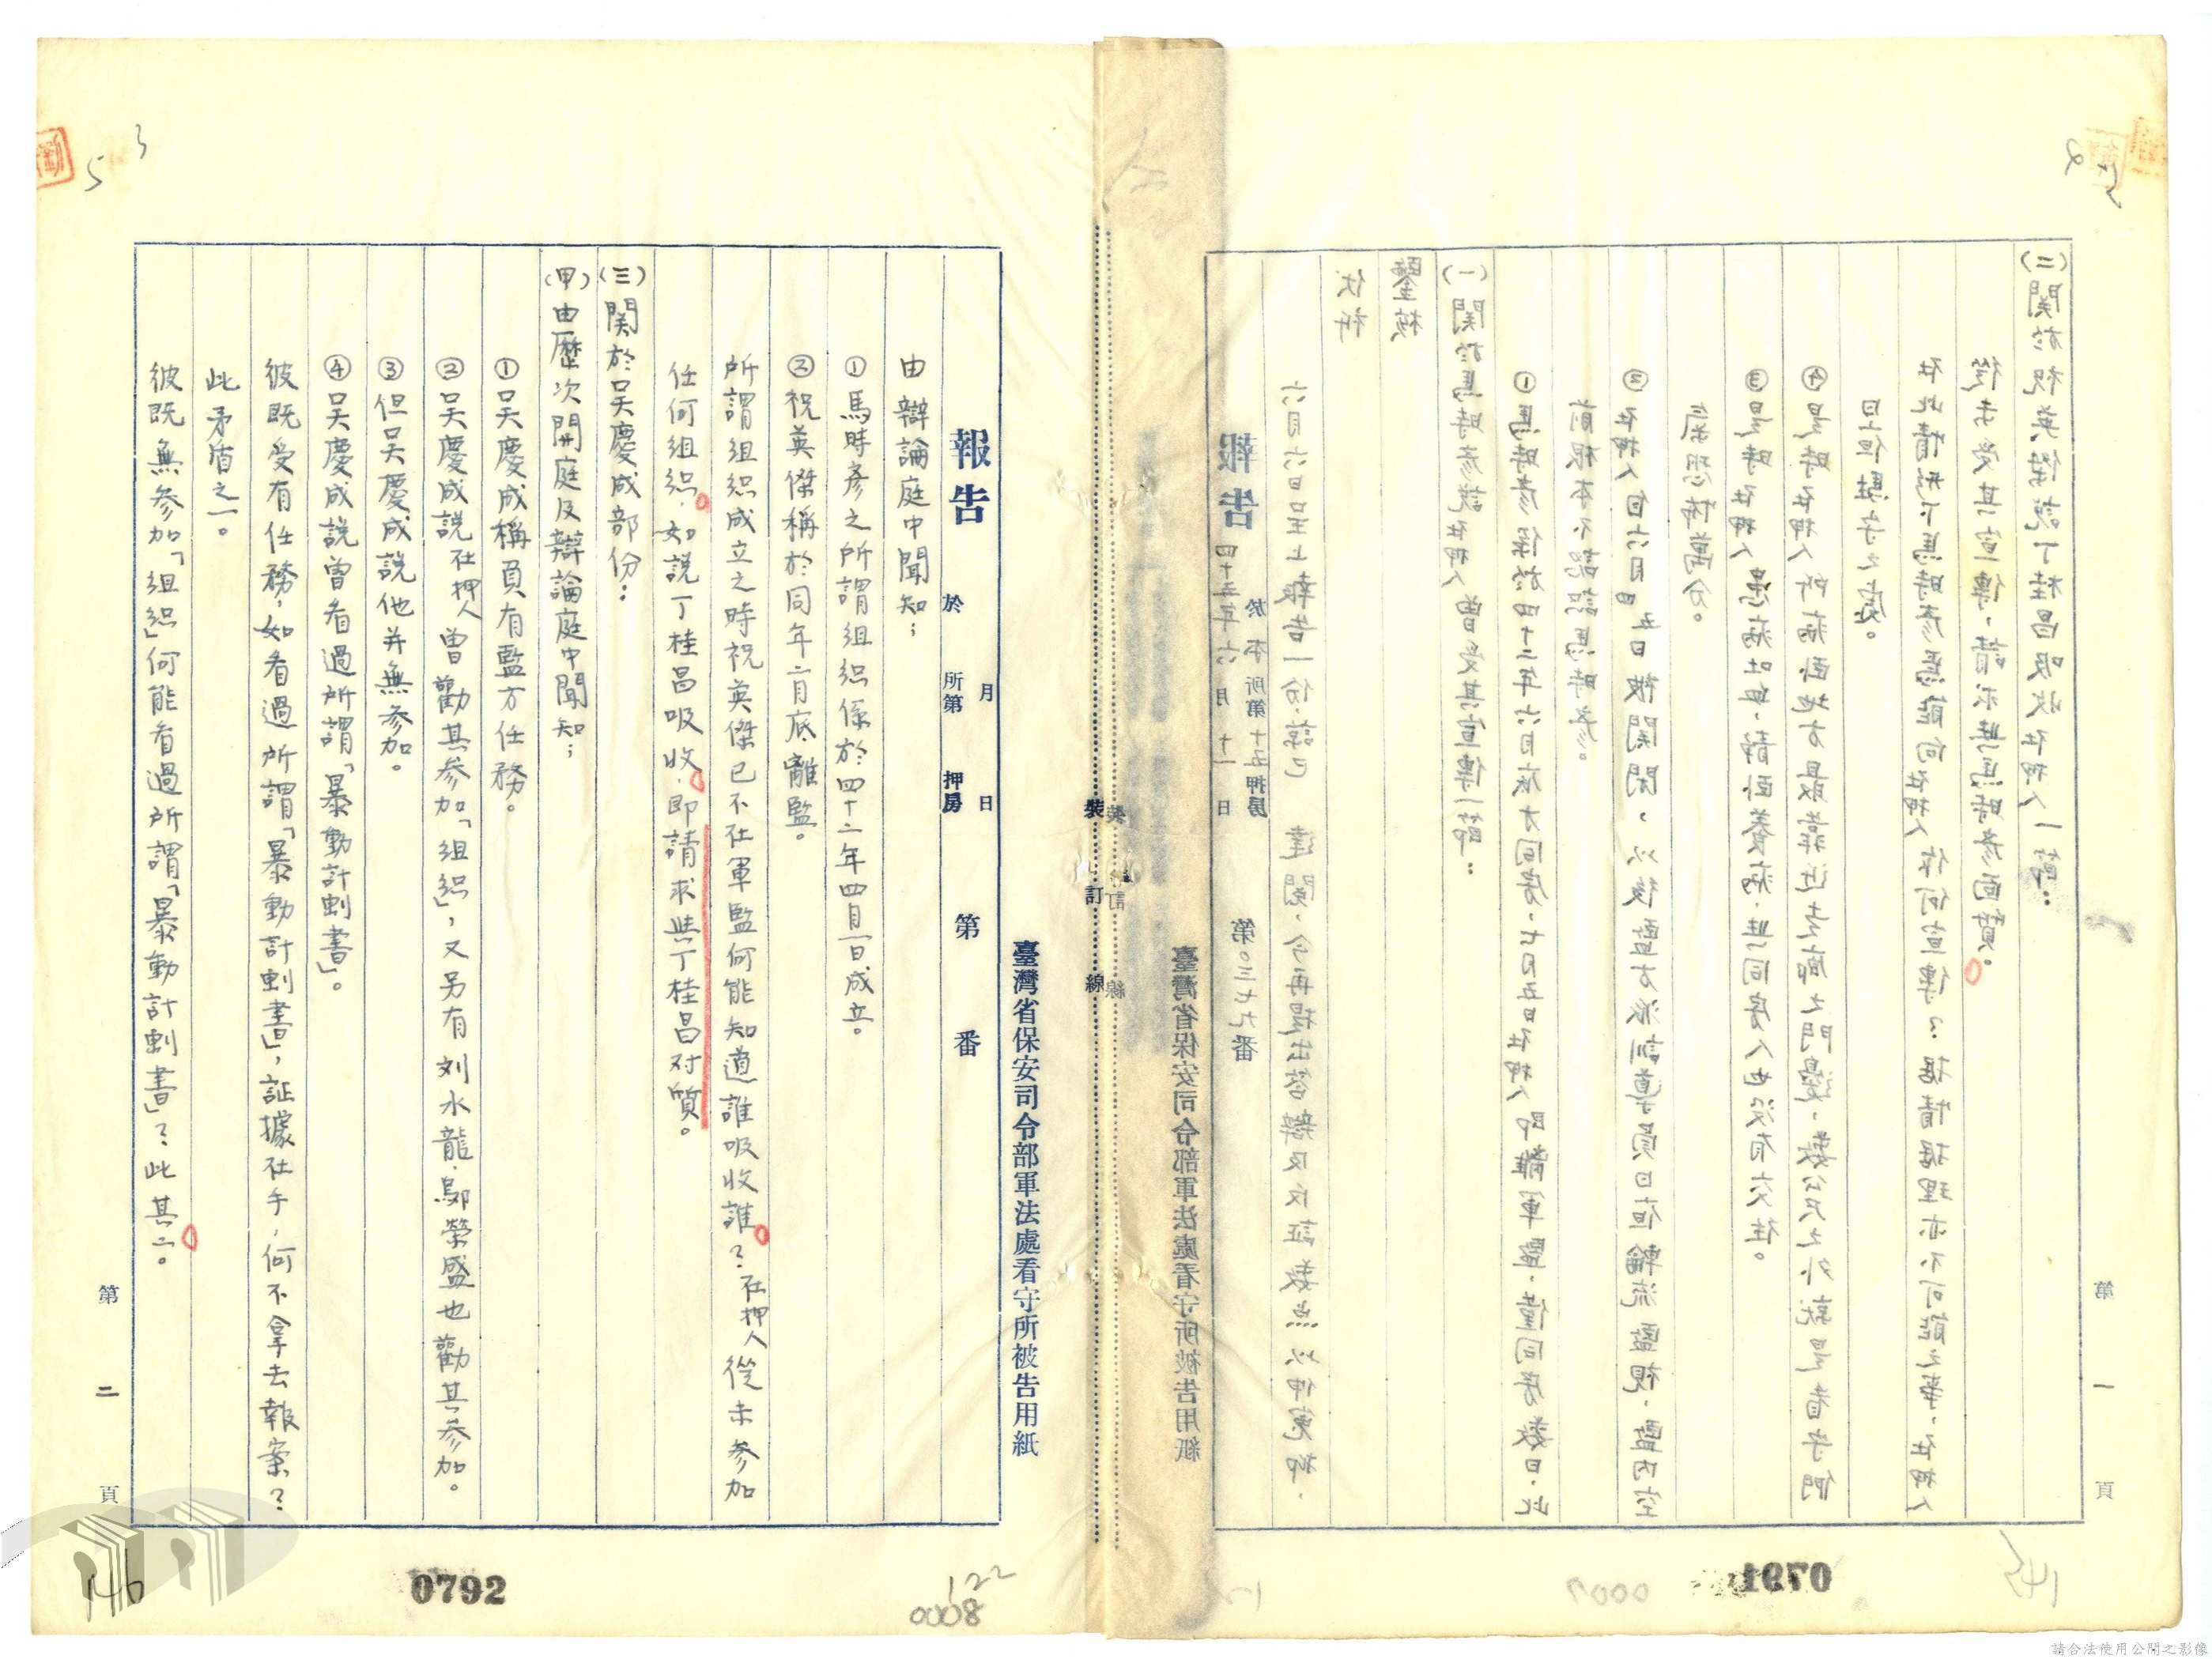 臺灣省保安司令部軍法處看守所被告用紙
報告 於本所第十五押房 四十五年六月十一日 第0三七九番
六月六日呈上報告一份,諒已 達閱,今再提出答辯及反証数点以伸寃抑,
伏祈
鑒核
(一)関於馬時彥説在押人曾受其宣傳一節:
①馬時彥係於四十二年六月底才同房,七月五日在押人即離軍監,僅同房数日,此
前根本不認識馬時彥。
②在押人自六月四五日被関閉,以後監方派訓導員日夜輪流監視,監内空
氣恐怖萬分。
③是時在押人患病吐血,靜卧養病,與同房人也没有交往。
④是時在押人所病卧地方最靠近走廊之門邊,数公尺之外就是看守們
日夜駐守之處。
在此情形下馬時彥焉能向在押人作何宣傳?据情据理亦不可能之事,在押人
從未受其宣傳,請求與馬時彥面質。
(二)関於祝英傑説丁桂昌吸收在押人一節:
第一頁
145
0007
裝訂線
臺灣省保安司令部軍法處看守所被告用紙
報告 於 所第 押房 月 日 第 番
由辯論庭中聞知;
①馬時彥之所謂組織係於四十二年四月一日成立。
②祝英傑稱於同年二月底離監。
所謂組織成立之時祝英傑已不在軍監何能知道誰吸收誰?在押人從未參加
任何組織,如説丁桂昌吸收,即請求與丁桂昌对質。
(三)関於吴慶成部份:
(甲)由歷次開庭及辯論庭中聞知;
①吴慶成稱負有監方任務。
②吴慶成説在押人曾勸其參加「組織」,又另有刘水龍,鄔榮盛也勸其參加。
③但吴慶成説他并無參加。
④吴慶成説曾看過所謂「暴動計劃書」。
彼既受有任務,如看過所謂「暴動計劃書」,証據在手,何不拿去報案?
此矛盾之一。
彼既無參加「組織」何能看過所謂「暴動計劃書」?此其二。
第二頁
3
5
146
0792
122
0008
請合法使用公開之影像